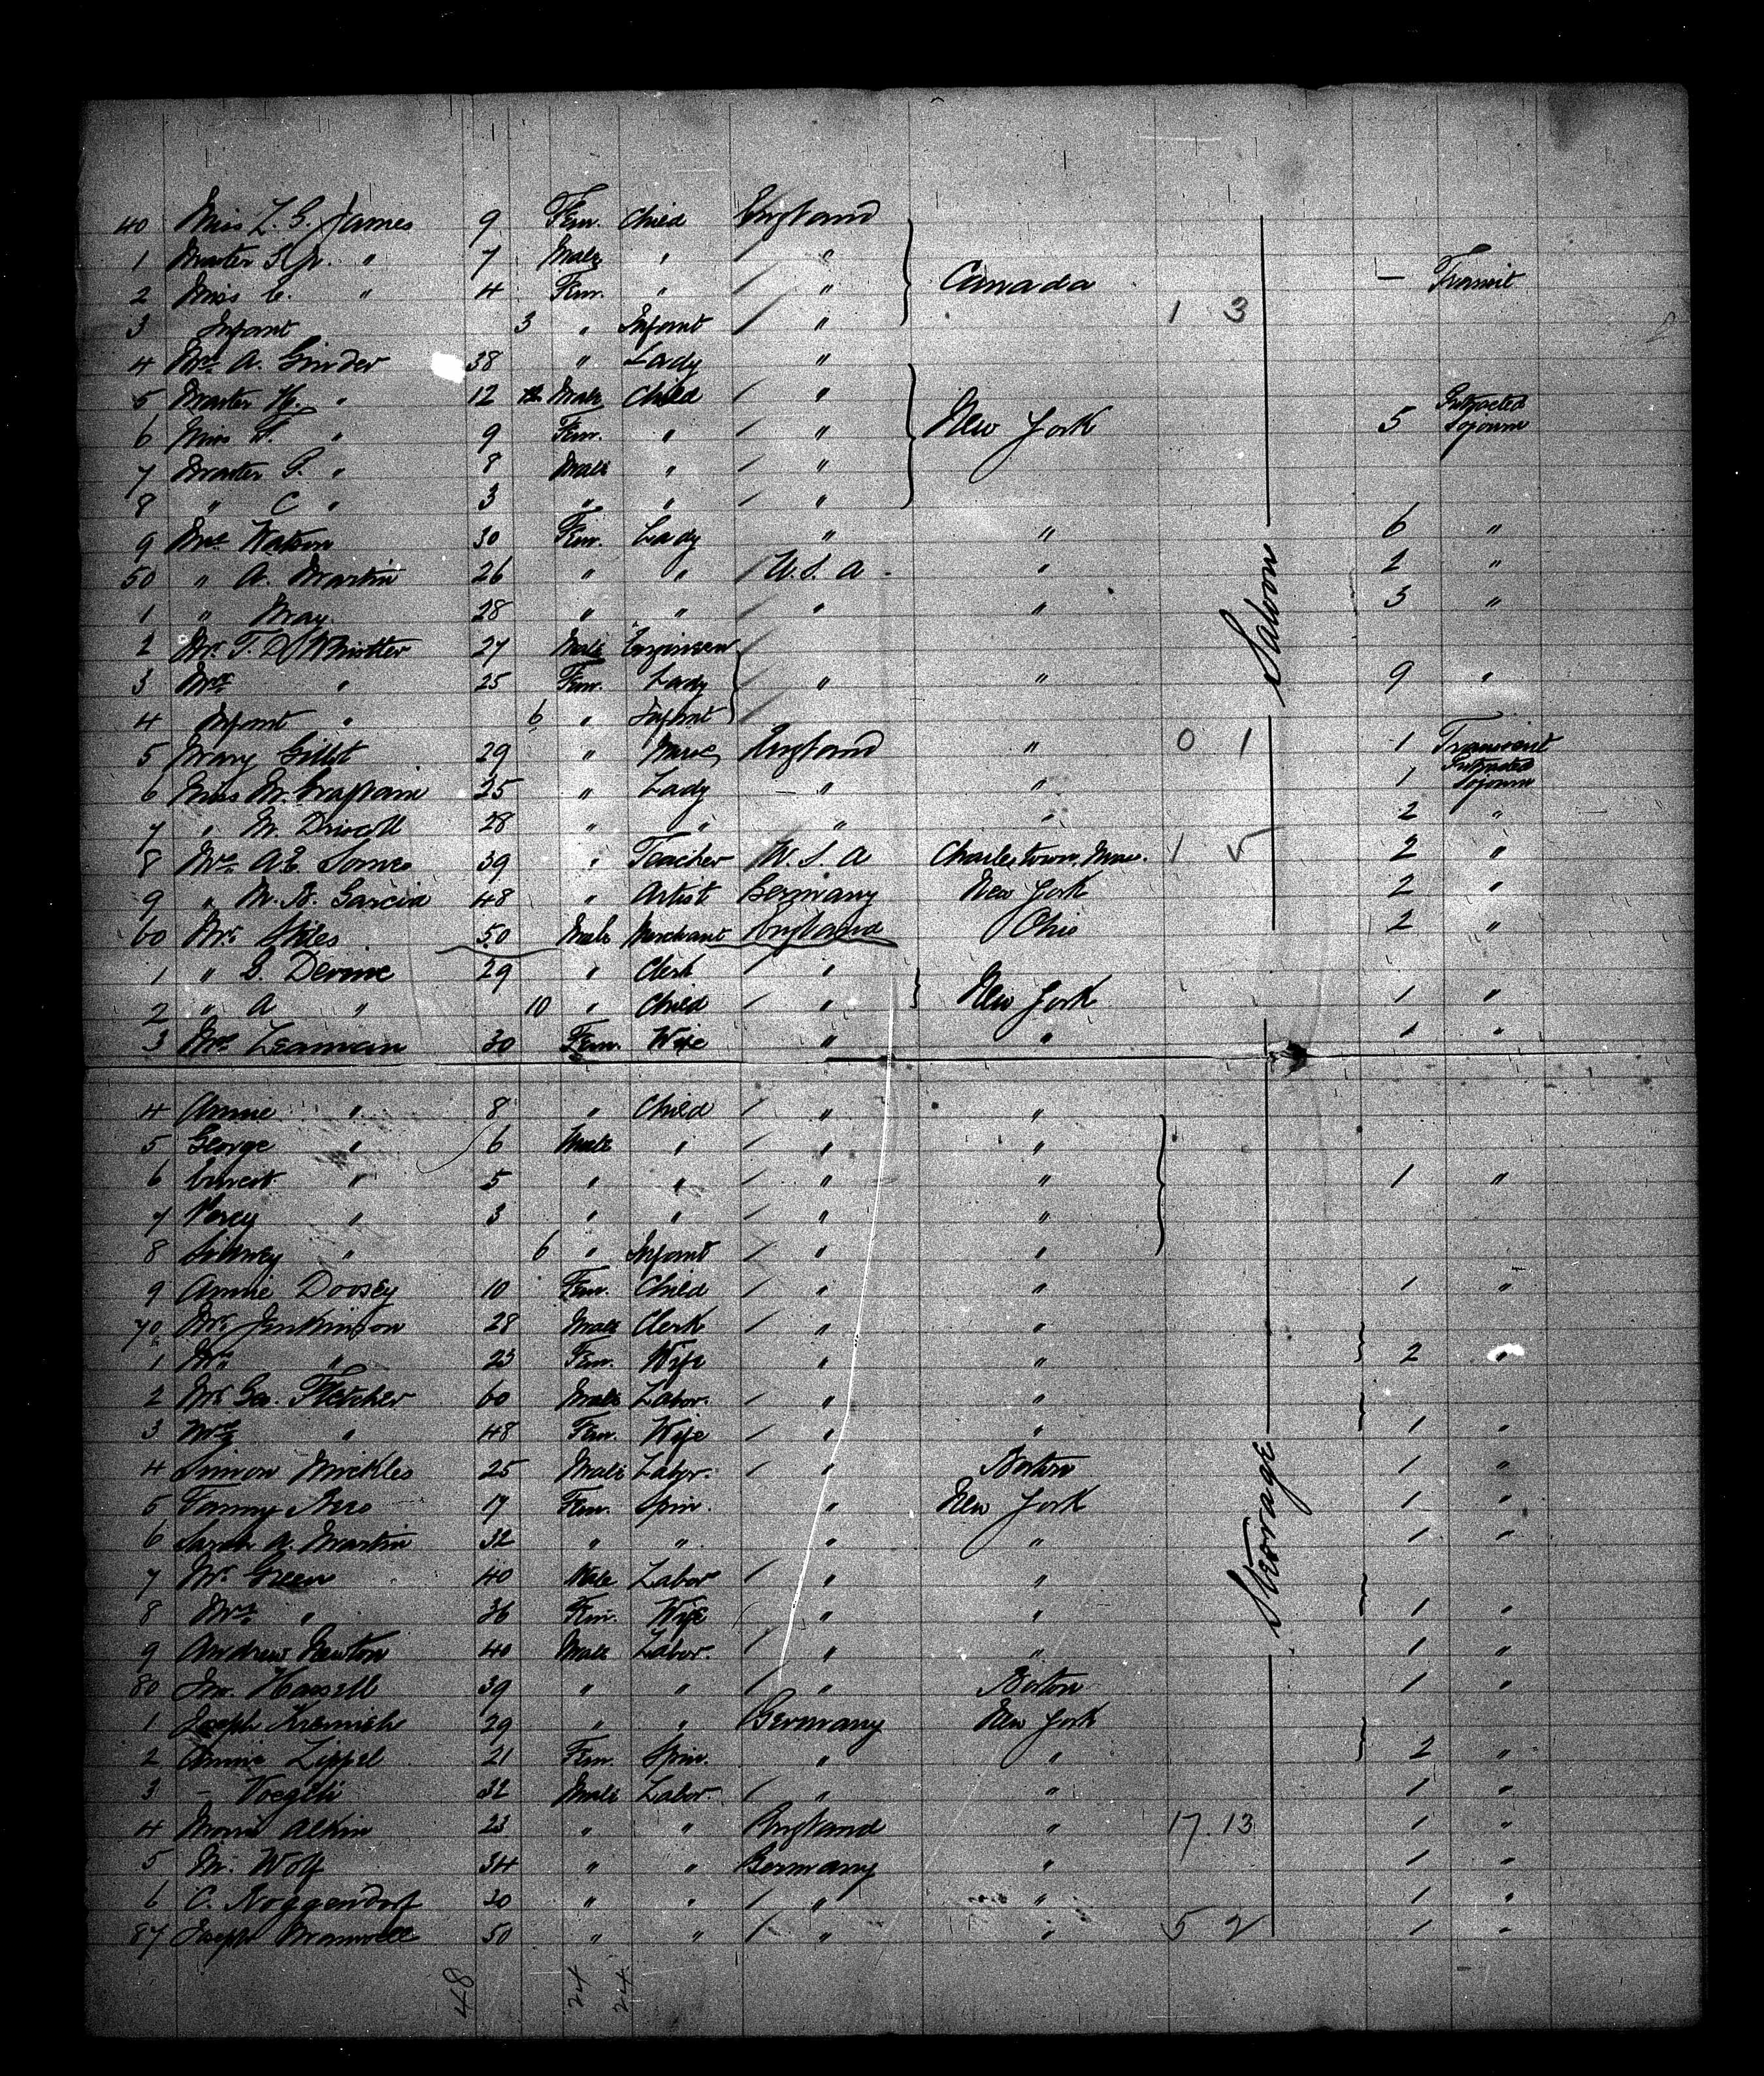 40 Miss L. G. James 9 Fem. Child England
1 Master " 7 Male " "
2 Miss C. " 4 Fem. " " Canada — Transit
3 Infant 3 " Infant " 1 3
4 Mrs A. Ginder 38 " Lady "
5 Master H. " 12 Male Child "
6 Miss F. " 9 Fem. " " New York 5 Protracted Sojourn
7 Master G. " 8 Male " "
8 " C " 3 " " "
9 Mrs Watson 30 Fem. Lady " " 6 "
50 " A. Martin 26 " " U.S.A " 2 "
1 " May 28 " " " " 3 "
Saloon
2 Mr. T. Whittler 27 Male Engineer
3 Mrs " 25 Fem. Lady " " 9 "
4 Infant " 6 " Infant
5 Mary 29 " England " 0 1 1 Transient
6 Miss M. 25 " Lady " 1 Protracted Sojourn
7 " M. Driscoll 28 " " " " 2 "
8 Mrs A.E. Somes 39 " Teacher U.S.A Charlestown, Mass. 1 2 "
9 " M. B. Garcia 48 " Artist Germany New York 2 "
60 Mr. Stiles 50 Male Merchant England Ohio 2 "
1 " G. Devine 29 " Clerk "
2 " A " 10 " Child " New York 1 "
3 Mrs Leaman 30 Fem. Wife " " 1 "
4 Annie " 8 " Child " "
5 George " 6 Male " " "
6 " 5 " " " " 1 "
7 Percy " 3 " " " "
8 Sidney " 6 " Infant " "
9 Annie Doosey 10 Fem. Child " " 1 "
70 Mr. Jenkinson 28 Male Clerk " "
1 Mrs " 23 Fem. Wife " " 2 "
2 Mr Geo. Fletcher 60 Male Labor. " "
3 Mrs " 48 Fem. Wife " " 1 "
4 Simon Mickles 25 Male Labor. " Boston 1 "
5 17 Fem. Spin. " New York 1 "
6 Sarah A. Martin 32 " " " " 1 "
Steerage
7 Mr. Green 40 Male Labor " "
8 Mrs " 36 Fem. Wife " " 1 "
9 Andrew Newton 40 Male Labor. " " 1 "
80 Jno. Hassell 39 " " " Boston 1 "
1 Joseph 29 " " Germany New York
2 Annie Lippel 21 Fem. Spin. " " 2 "
3 – Voegtli 32 Male Labor " " 1 "
4 Morris Alkin 23 " " England " 17 13 1 "
5 M. Wolf 34 " " Germany " 1 "
6 C. Roggendorf 30 " " " " 1 "
87 Joseph 50 " " " " 5 2 1 "
48 24 24